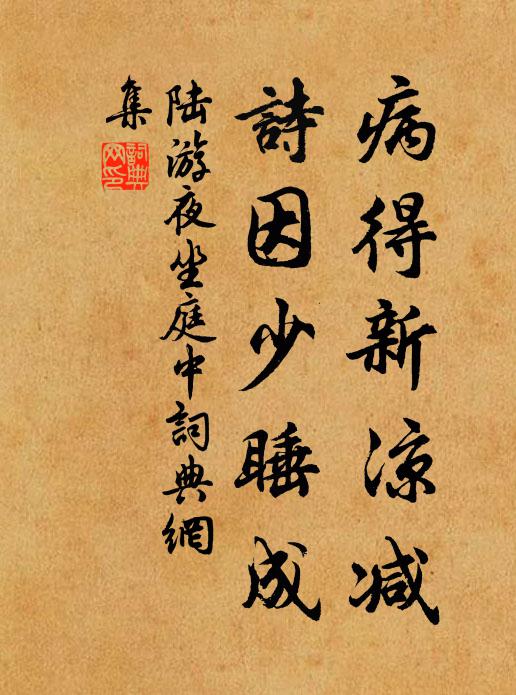 病得新涼减
詩因少睡成
陸游夜坐庭中詞典網
集
詞典
网印